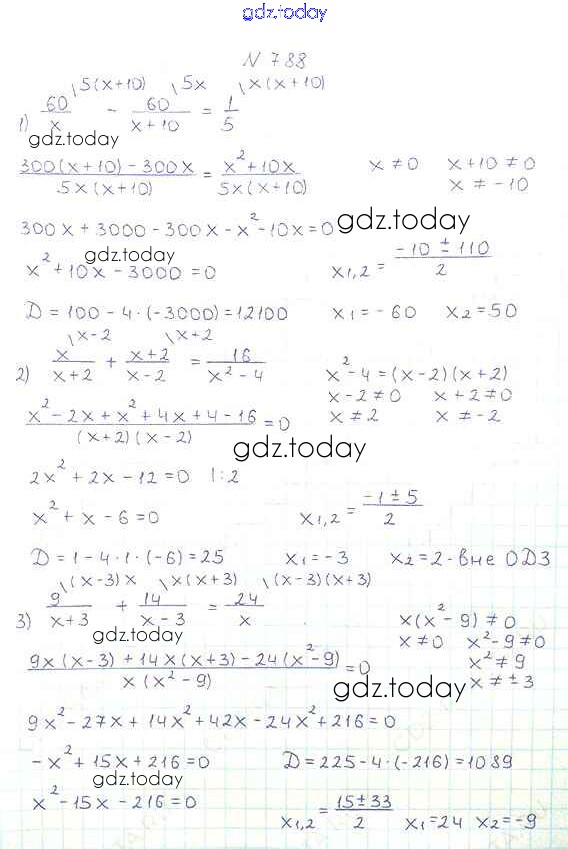 gdz.today
N 788
\5(x+10) \5x \x(x+10)
1) 60/x - 60/(x+10) = 1/5
gdz.today
(300(x+10) - 300x)/(5x(x+10)) = (x²+10x)/(5x(x+10)) x ≠ 0 x+10 ≠ 0
x ≠ -10
300x + 3000 - 300x - x² - 10x = 0 gdz.today
gdz.today
x² + 10x - 3000 = 0 x1,2 = (-10 ± 110)/2
D = 100 - 4·(-3000) = 12100 x1 = -60 x2 = 50
\x-2 \x+2
2) x/(x+2) + (x+2)/(x-2) = 16/(x²-4) x²-4 = (x-2)(x+2)
x-2 ≠ 0 x+2 ≠ 0
x ≠ 2 x ≠ -2
(x² - 2x + x² + 4x + 4 - 16)/((x+2)(x-2)) = 0
gdz.today
2x² + 2x - 12 = 0 |:2
x² + x - 6 = 0 x1,2 = (-1 ± 5)/2
D = 1 - 4·1·(-6) = 25 x1 = -3 x2 = 2 - вне ОДЗ
\(x-3)x \x(x+3) \(x-3)(x+3)
3) 9/(x+3) + 14/(x-3) = 24/x x(x²-9) ≠ 0
gdz.today
x ≠ 0 x²-9 ≠ 0
x² ≠ 9
x ≠ ±3
(9x(x-3) + 14x(x+3) - 24(x²-9))/(x(x²-9)) = 0
gdz.today
9x² - 27x + 14x² + 42x - 24x² + 216 = 0
-x² + 15x + 216 = 0 D = 225 - 4·(-216) = 1089
gdz.today
x² - 15x - 216 = 0 x1,2 = (15 ± 33)/2 x1 = 24 x2 = -9